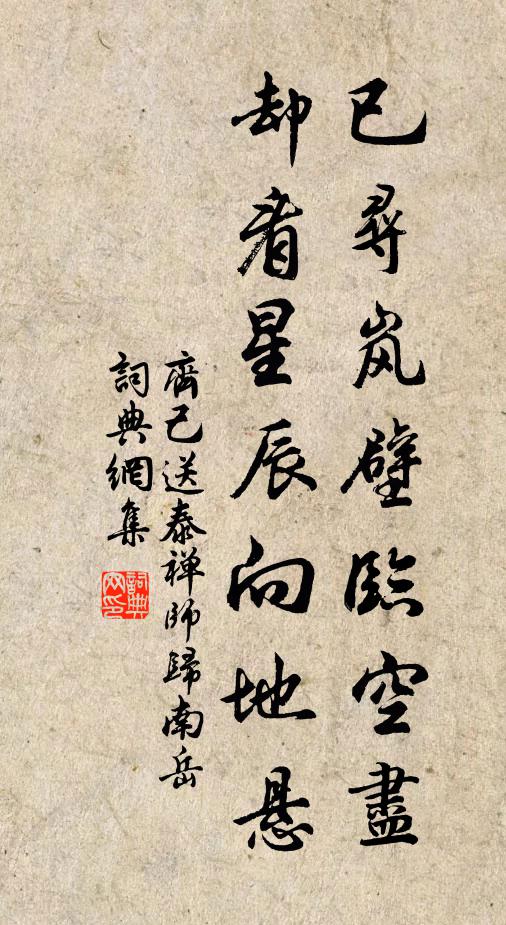 已尋岚壁臨空盡
却看星辰向地悬
齊己送泰禅師歸南岳
詞典網集
詞典
网印